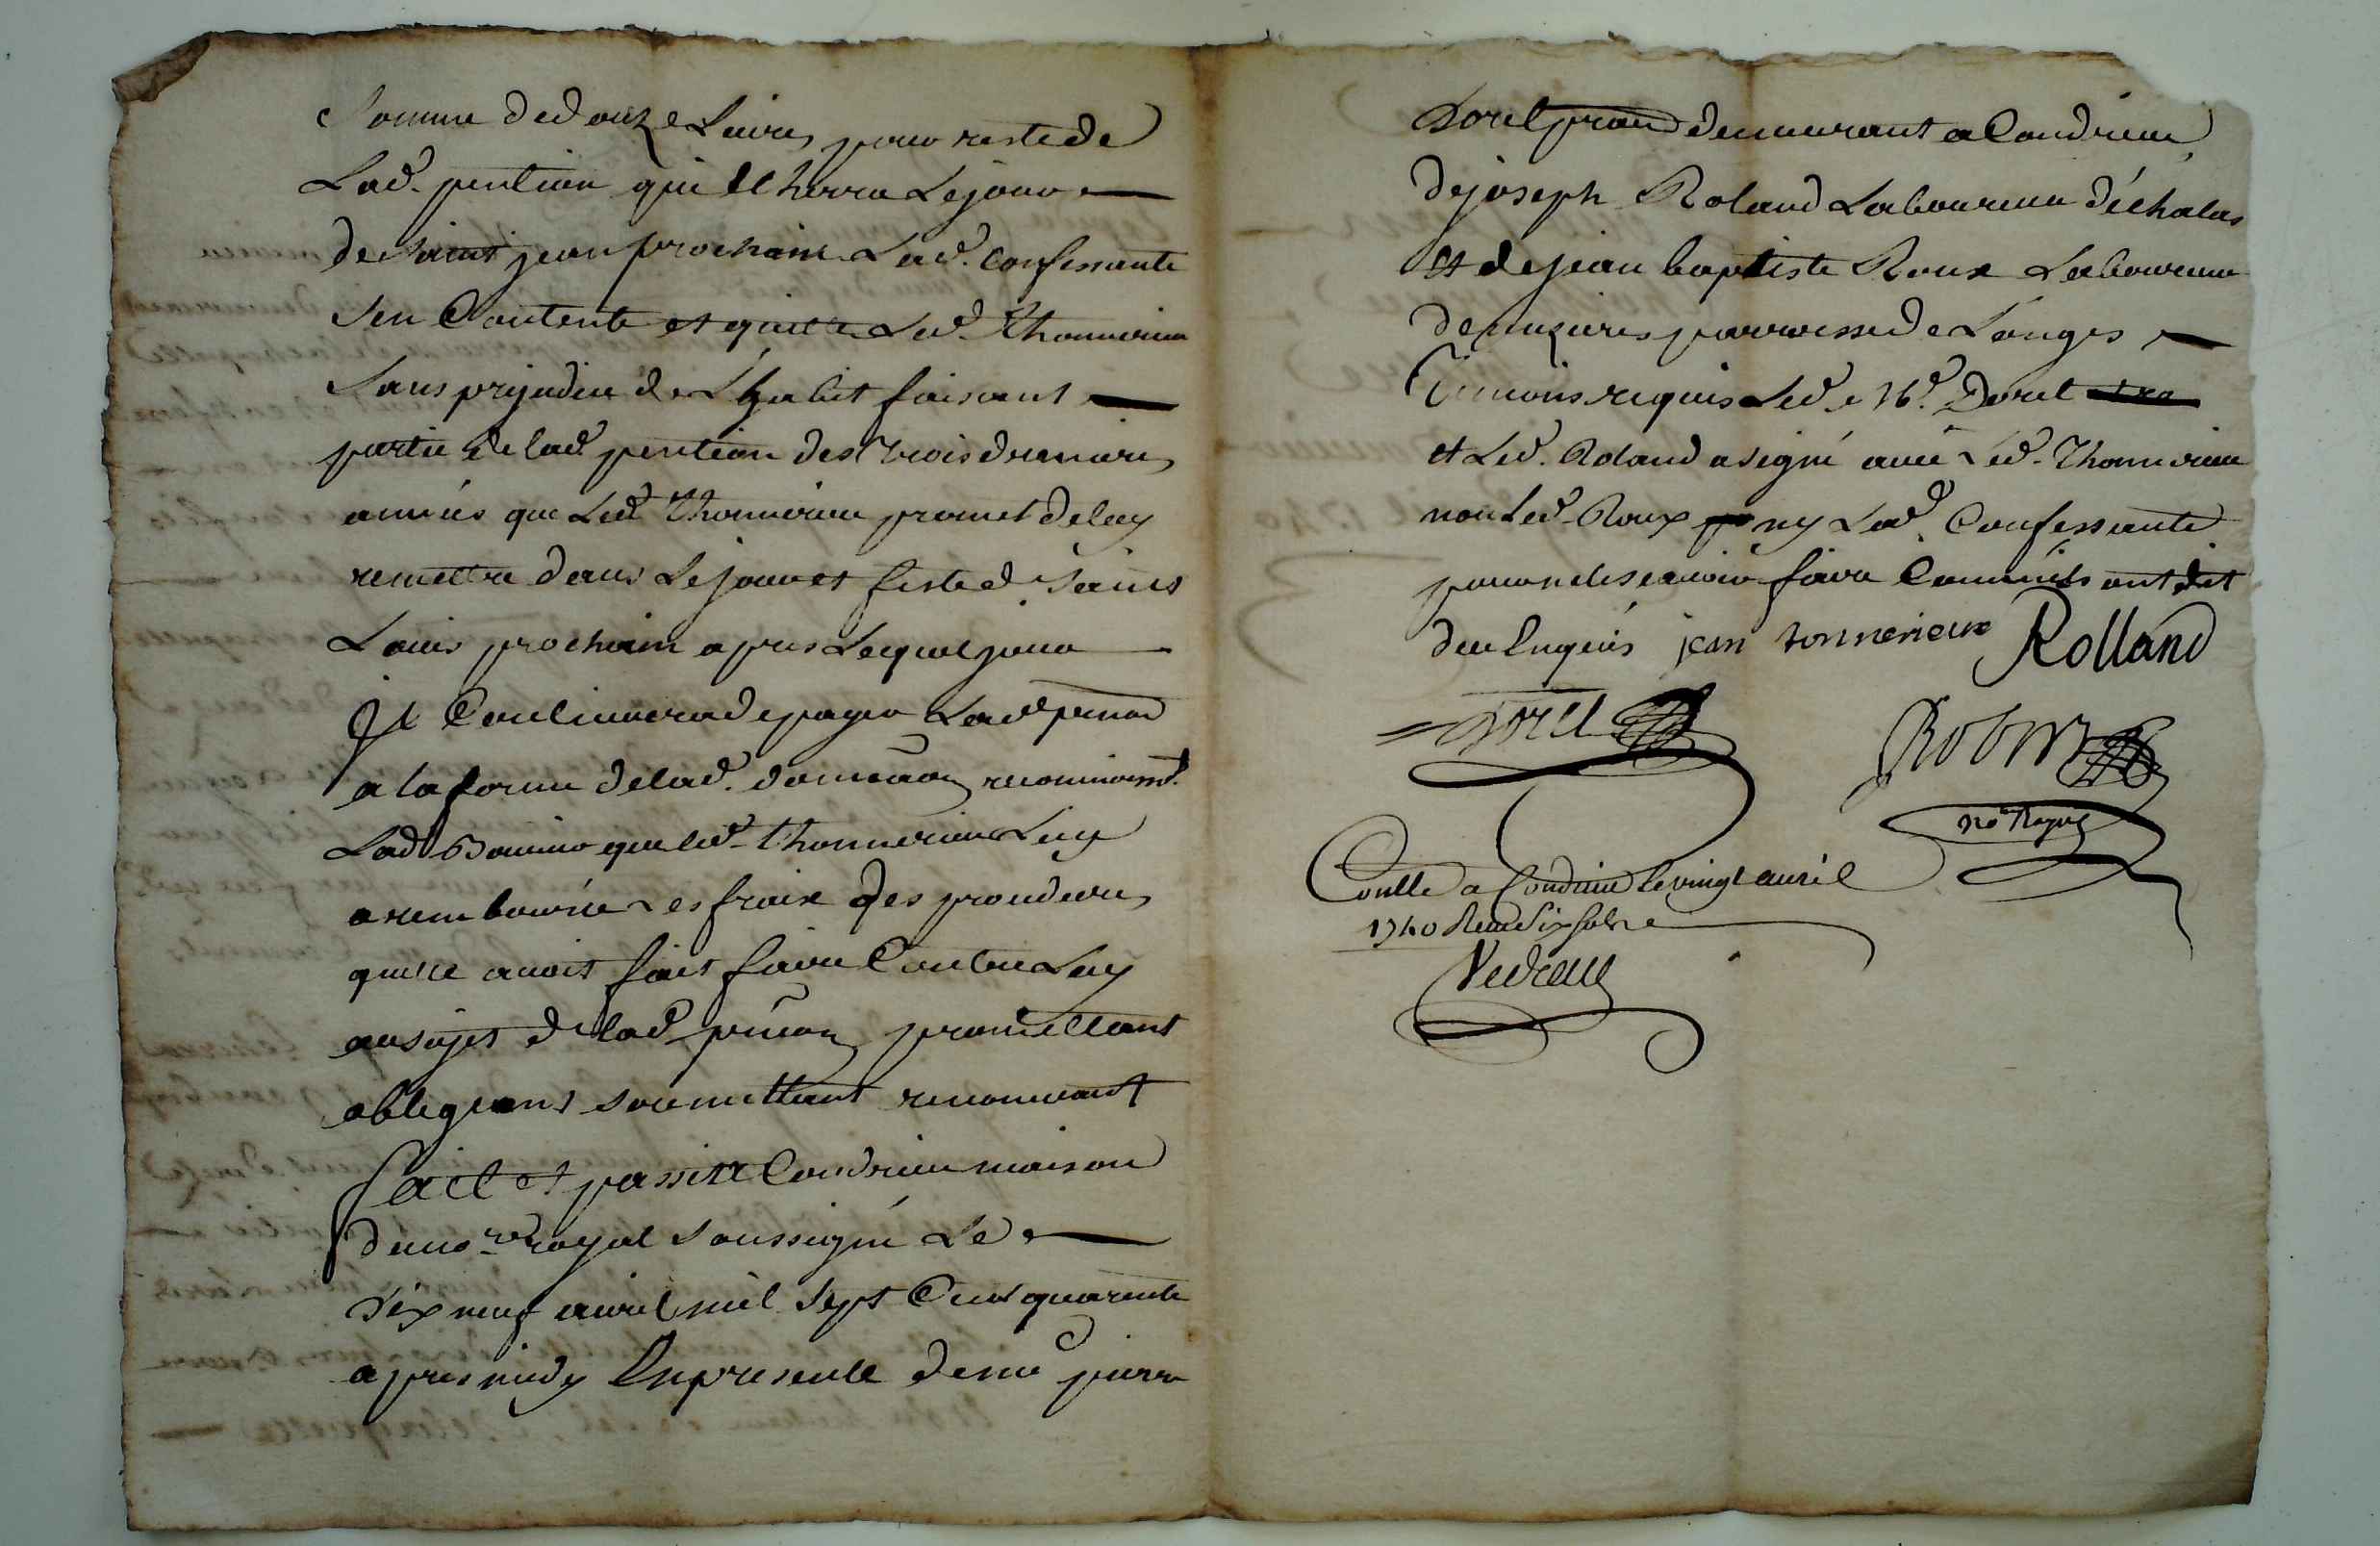 Somme de douze Livres pour reste de
Lad. pention qui Echerra Le jour
de saint jean prochain Lad. Confessante
sen Contente et quitte Led. Thonnerieu
Sans prejudice de L'habit faisant
partie de lad. pention des trois dernieres
années que Led. Thonnerieu promet de luy
remettre dans Le jour et feste de Saint
Louis prochain apres Lequel jour
Il Continuera de payer Lad. pention
a la forme de lad. donnaon reconnoissant
Lad. que led. Thonnerieu Luy
a rembourcé Les fraix des procedures
quelle avoit fait faire Contre Luy
au sujet de lad. pention promettant
obligeant soumettant renonceant
fait et passé a Condrieu maison
du nore royal soussigné Le
dix neuf avril mil sept Cent quarente
apres midy En presence de me pierre
Dorel pran demeurant a Condrieu
de joseph Roland Laboureur d'échalas
Et de jean baptiste Roux Laboureur
de parroisse de Longes
Temoins requis Led. Me. Dorel
et Led. Roland a signé avec Led. Thonnerieu
non Led. Roux ny Lad. Confessante
pour ne scavoir faire Comm'ils ont dit
de ce Enquis jean tonnerieux Rolland
Dorel Robin
nore Royal
Conllé a Condrieu le vingt avril
1740 Receu six sols